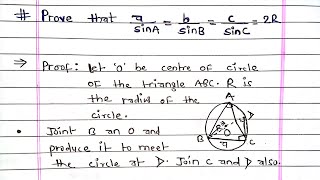 # Prove that a/sinA = b/sinB = c/sinC = 2R
⇒ Proof: let 'O' be centre of circle
of the triangle ABC. R is
the radius of the
circle.
• Joint B an O and
produce it to meet
the circle at D. Join C and D also.
A
D
O
B
C
a